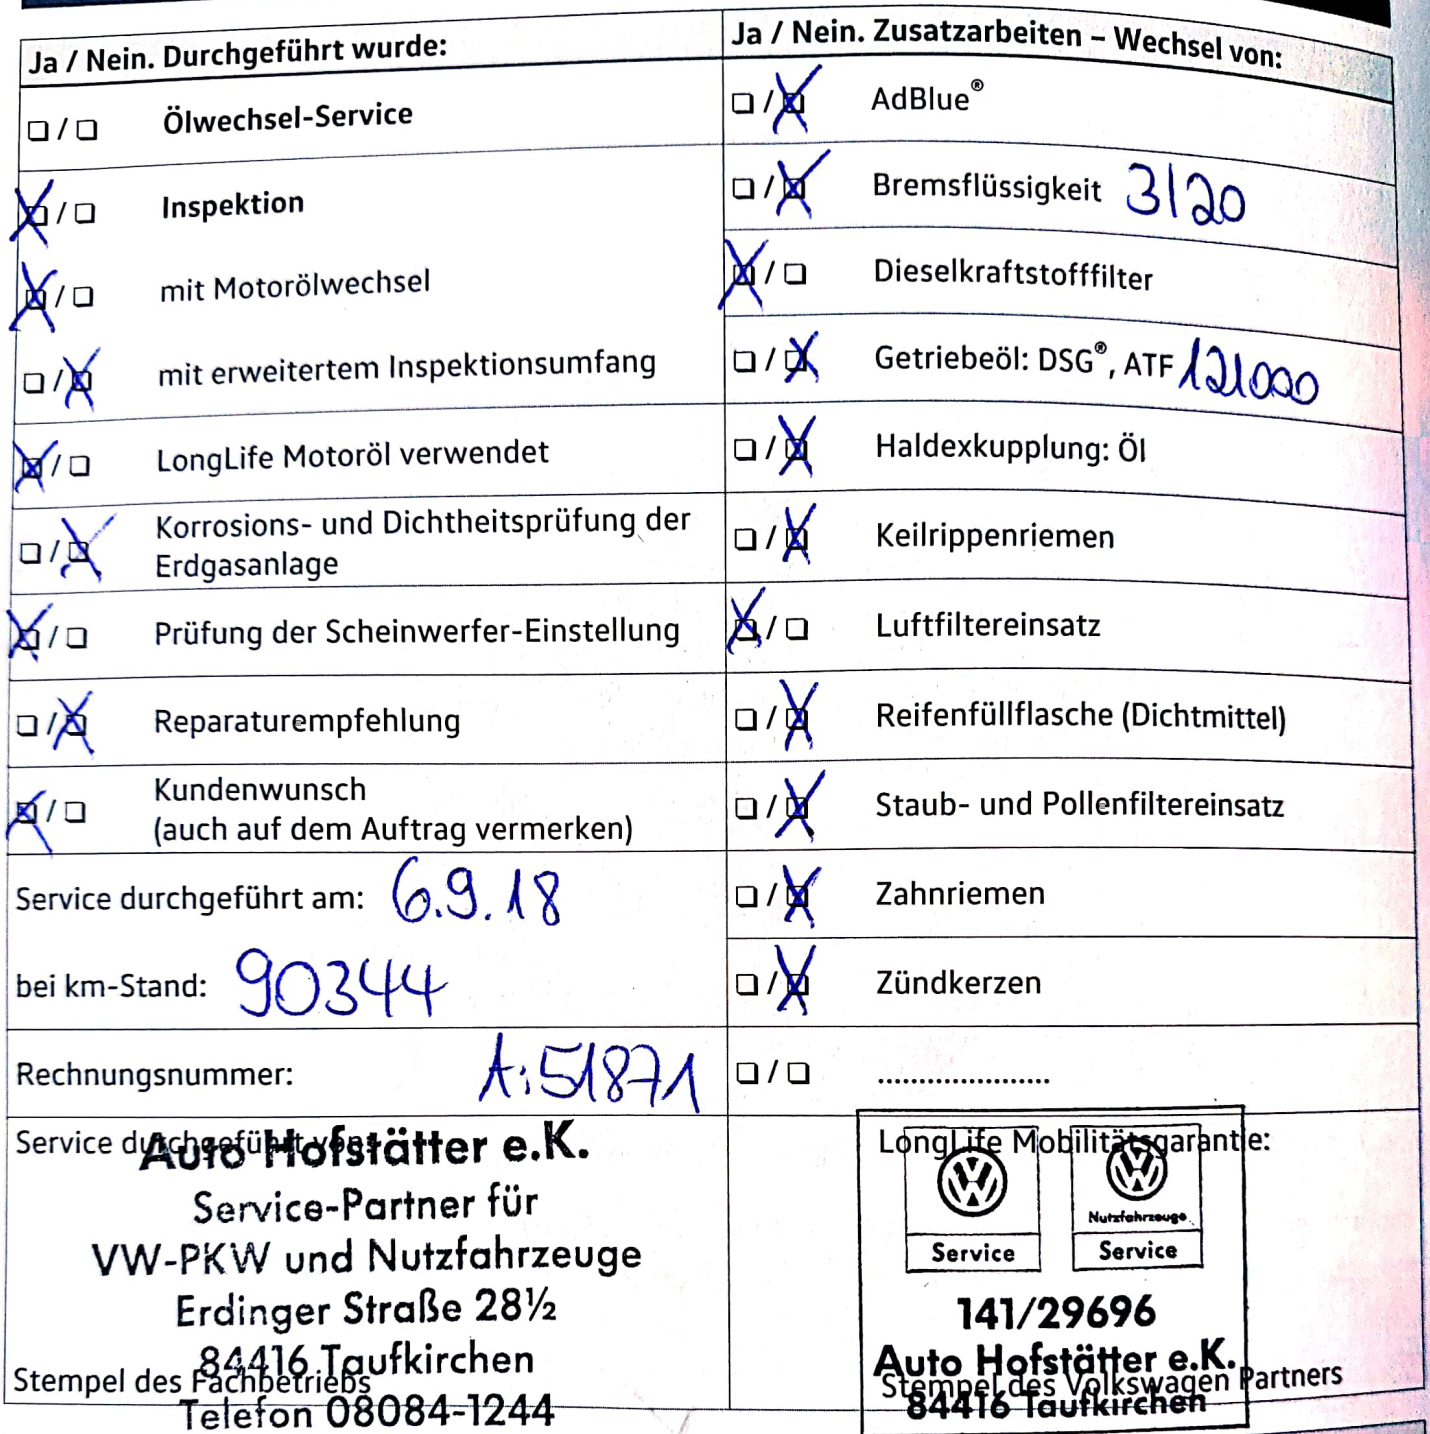 Ja / Nein. Durchgeführt wurde:
❏ / ❏ Ölwechsel-Service
☒ / ❏ Inspektion
☒ / ❏ mit Motorölwechsel
❏ / ☒ mit erweitertem Inspektionsumfang
☒ / ❏ LongLife Motoröl verwendet
❏ / ☒ Korrosions- und Dichtheitsprüfung der
Erdgasanlage
☒ / ❏ Prüfung der Scheinwerfer-Einstellung
❏ / ☒ Reparaturempfehlung
☒ / ❏ Kundenwunsch
(auch auf dem Auftrag vermerken)
Service durchgeführt am: 6.9.18
bei km-Stand: 90344
Rechnungsnummer: A:51871
Service durchgeführt von:
Auto Hofstätter e.K.
Service-Partner für
VW-PKW und Nutzfahrzeuge
Erdinger Straße 28½
84416 Taufkirchen
Stempel des Fachbetriebs
Telefon 08084-1244
Ja / Nein. Zusatzarbeiten – Wechsel von:
❏ / ☒ AdBlue®
❏ / ☒ Bremsflüssigkeit 3/20
☒ / ❏ Dieselkraftstofffilter
❏ / ☒ Getriebeöl: DSG®, ATF 121000
❏ / ☒ Haldexkupplung: Öl
❏ / ☒ Keilrippenriemen
☒ / ❏ Luftfiltereinsatz
❏ / ☒ Reifenfüllflasche (Dichtmittel)
❏ / ☒ Staub- und Pollenfiltereinsatz
❏ / ☒ Zahnriemen
❏ / ☒ Zündkerzen
❏ / ❏ .....................
LongLife Mobilitätsgarantie:
Nutzfahrzeuge
Service Service
141/29696
Auto Hofstätter e.K.
Stempel des Volkswagen Partners
84416 Taufkirchen